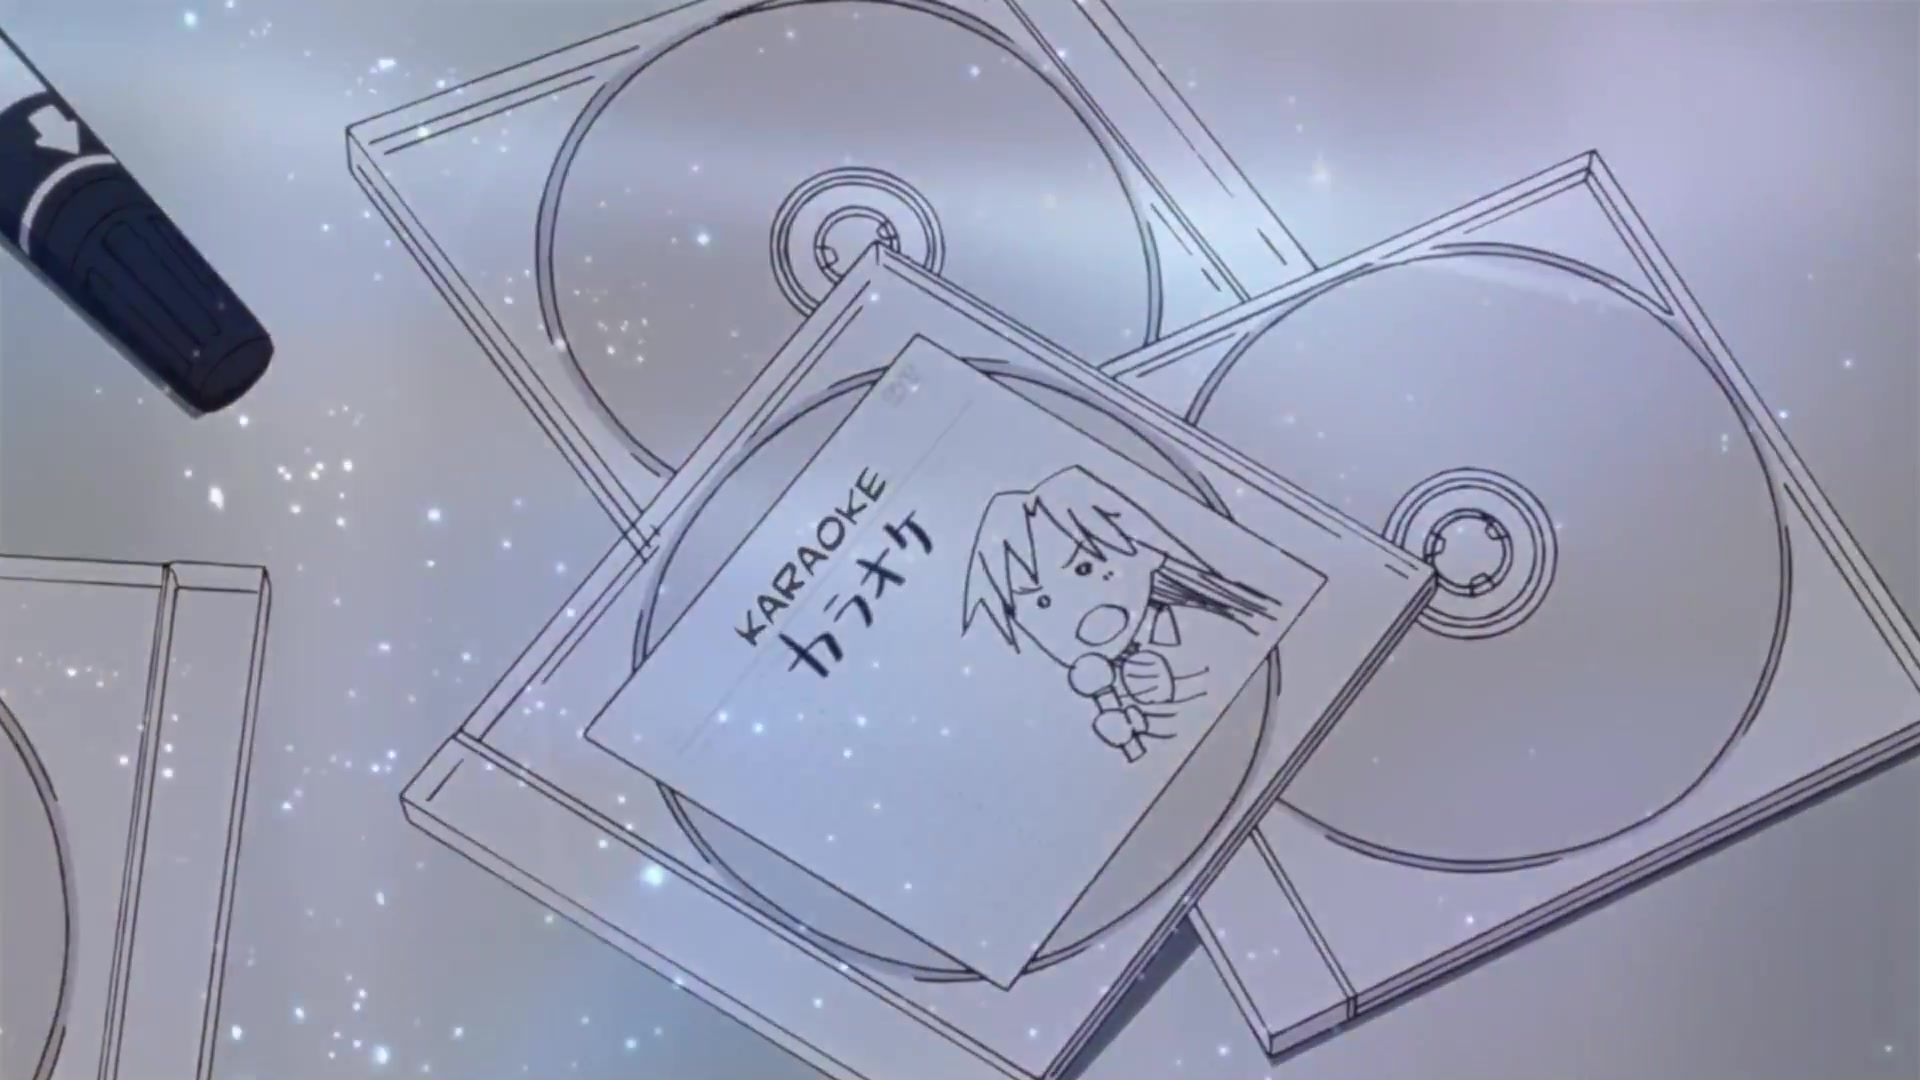 KARAOKE
カラオケ